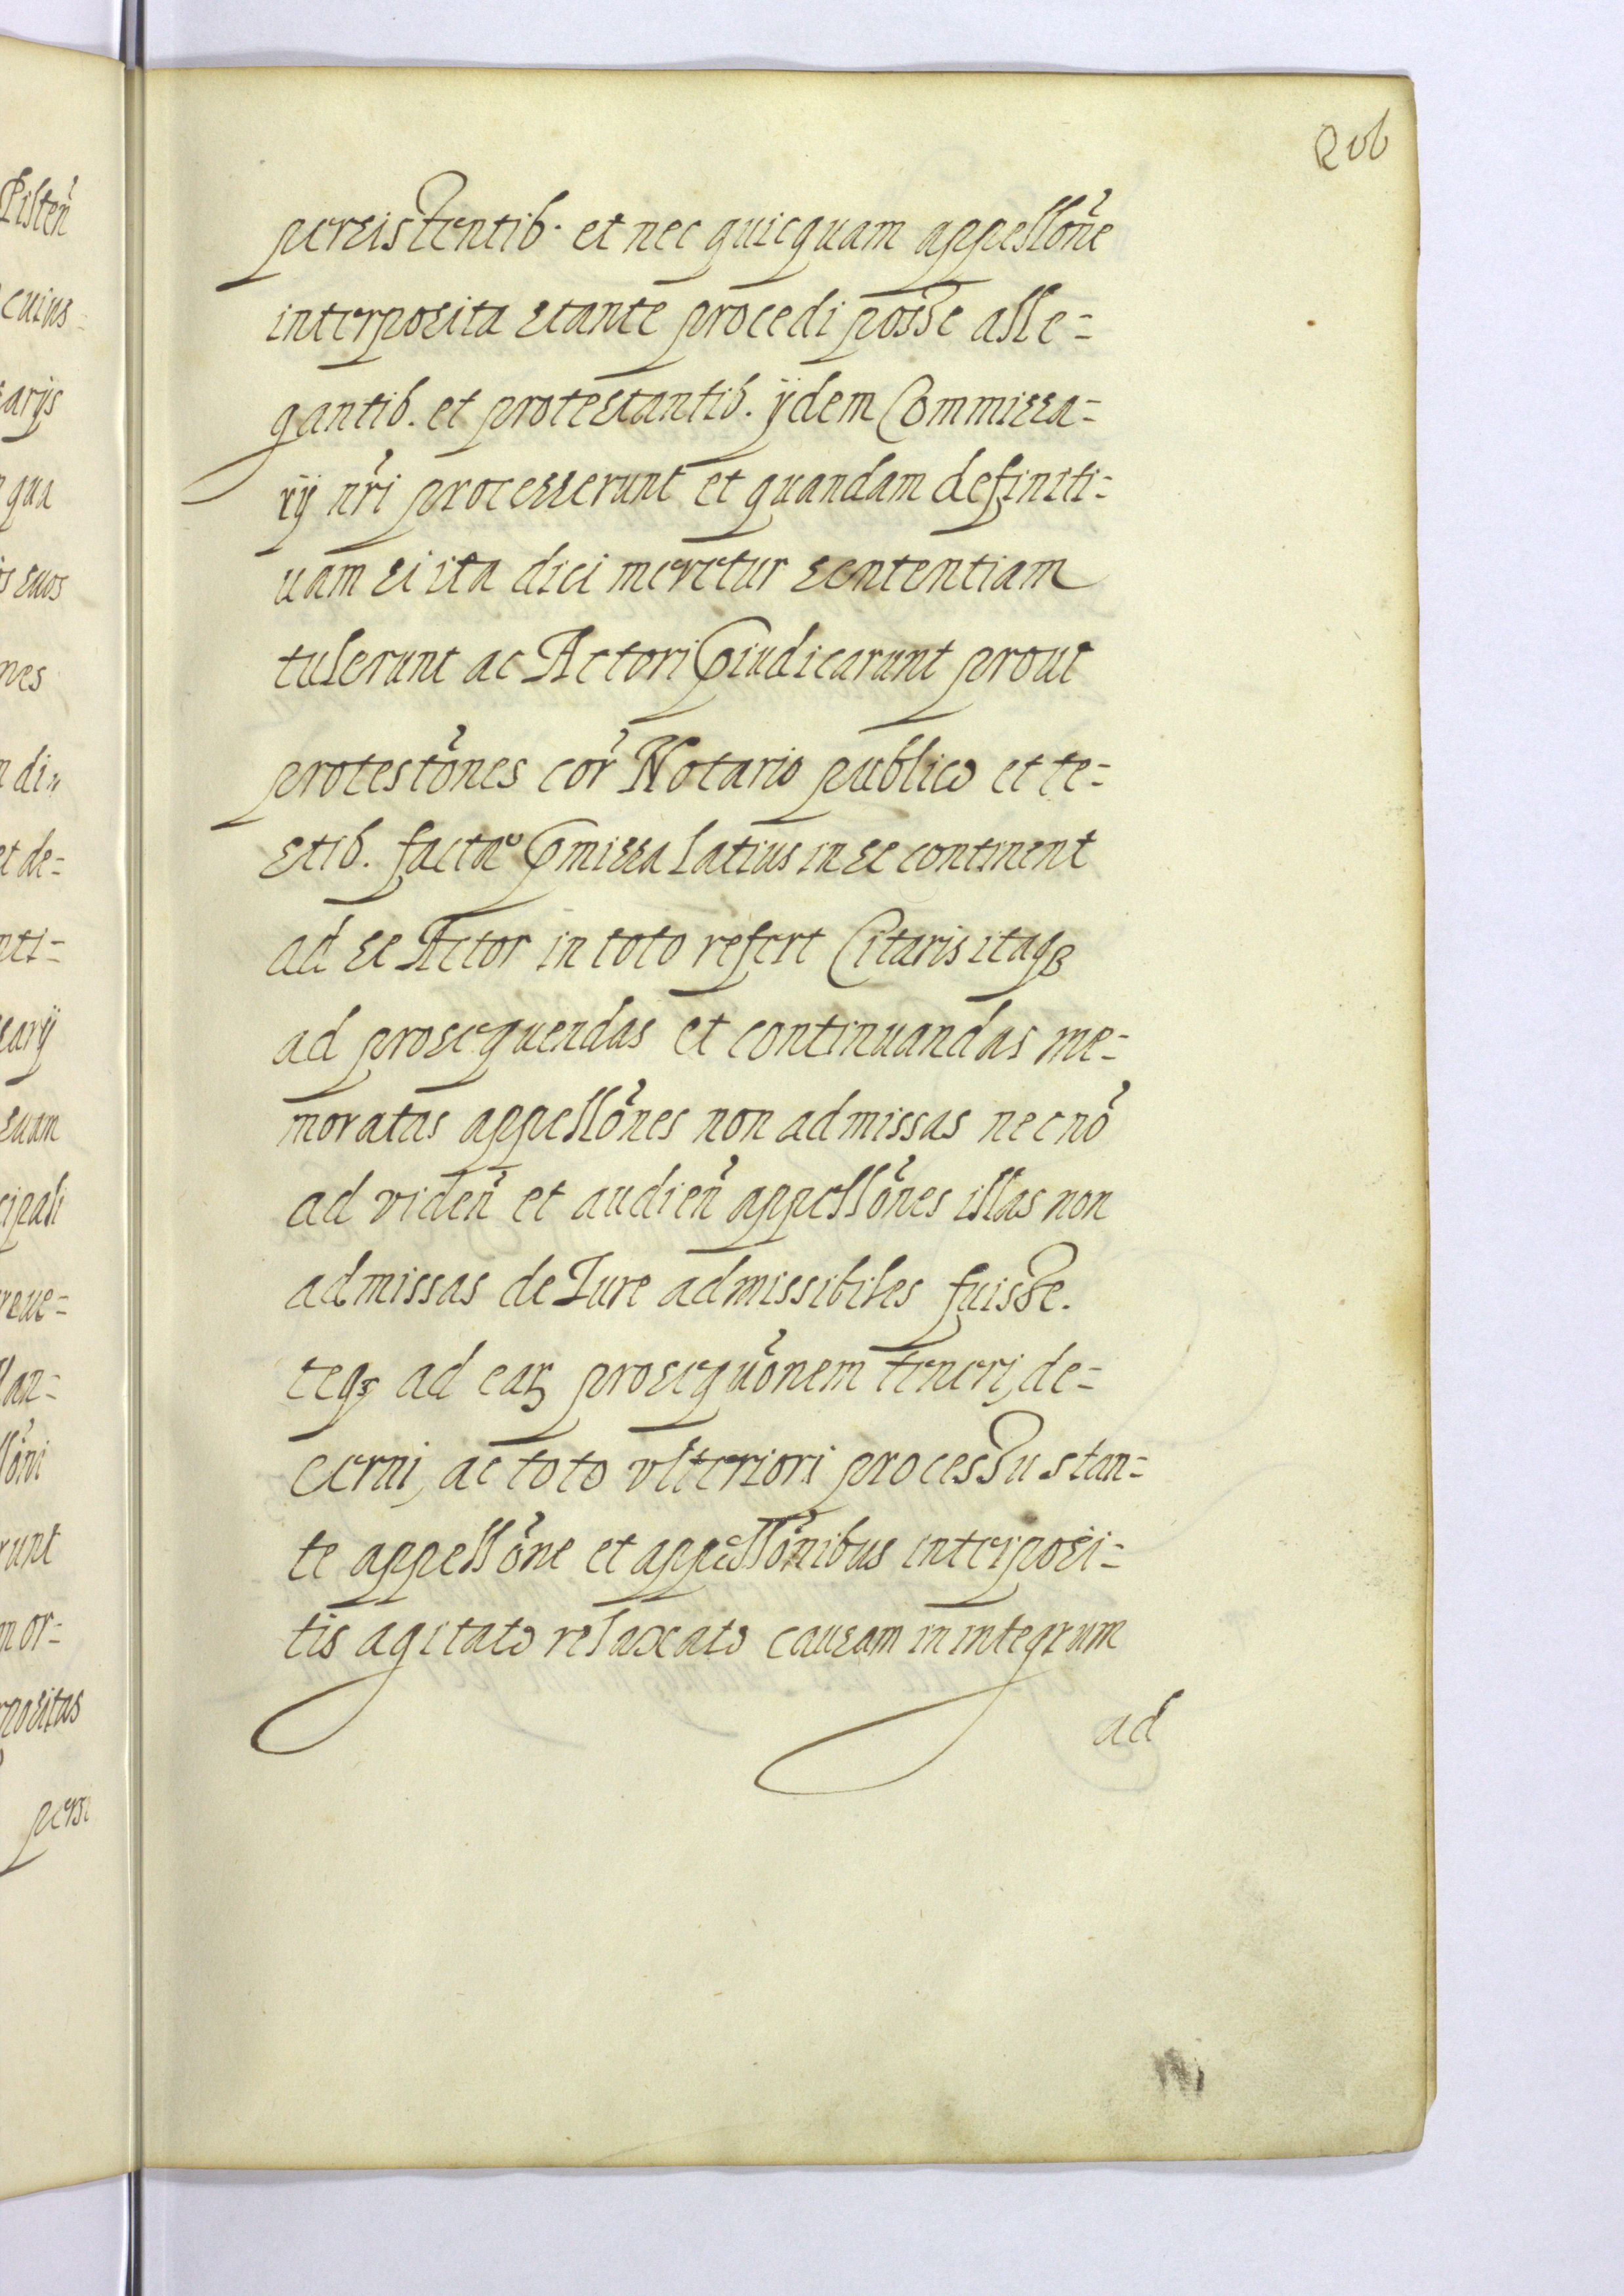 206
persistentib. et nec quicquam appellõne
interposita stante procedi posse alle=
gantib. et protestantib. ijdem Commissa=
rij nr̃i processerunt et quandam definiti=
uam si ita dici meretur sententiam
tulerunt ac Actori p̃iudicarunt prout
protestõnes cor̃ Notario publico et te=
stib. factae p̃missa latius in se continent
ad se Actor in toto refert Citaris itaqꝫ
ad prosequendas et continuandas me=
moratas appellõnes non admissas nec nõ
ad viden̄ et audien̄ appellõnes illas non
admissas de Iure admissibiles fuisse.
teqꝫ ad eaꝝ prosequõnem teneri, de=
cerni, ac toto vlteriori processu stan=
te appellõne et appellõnibus interposi=
tis agitato relaxato causam in integrum
ad
Pisten̄
cuius=
sarijs
qua
s suos
nes
di„
et de=
nti=
sarij
suam
cipali
reue=
llan=
llõni
runt
mor=
positas
persi